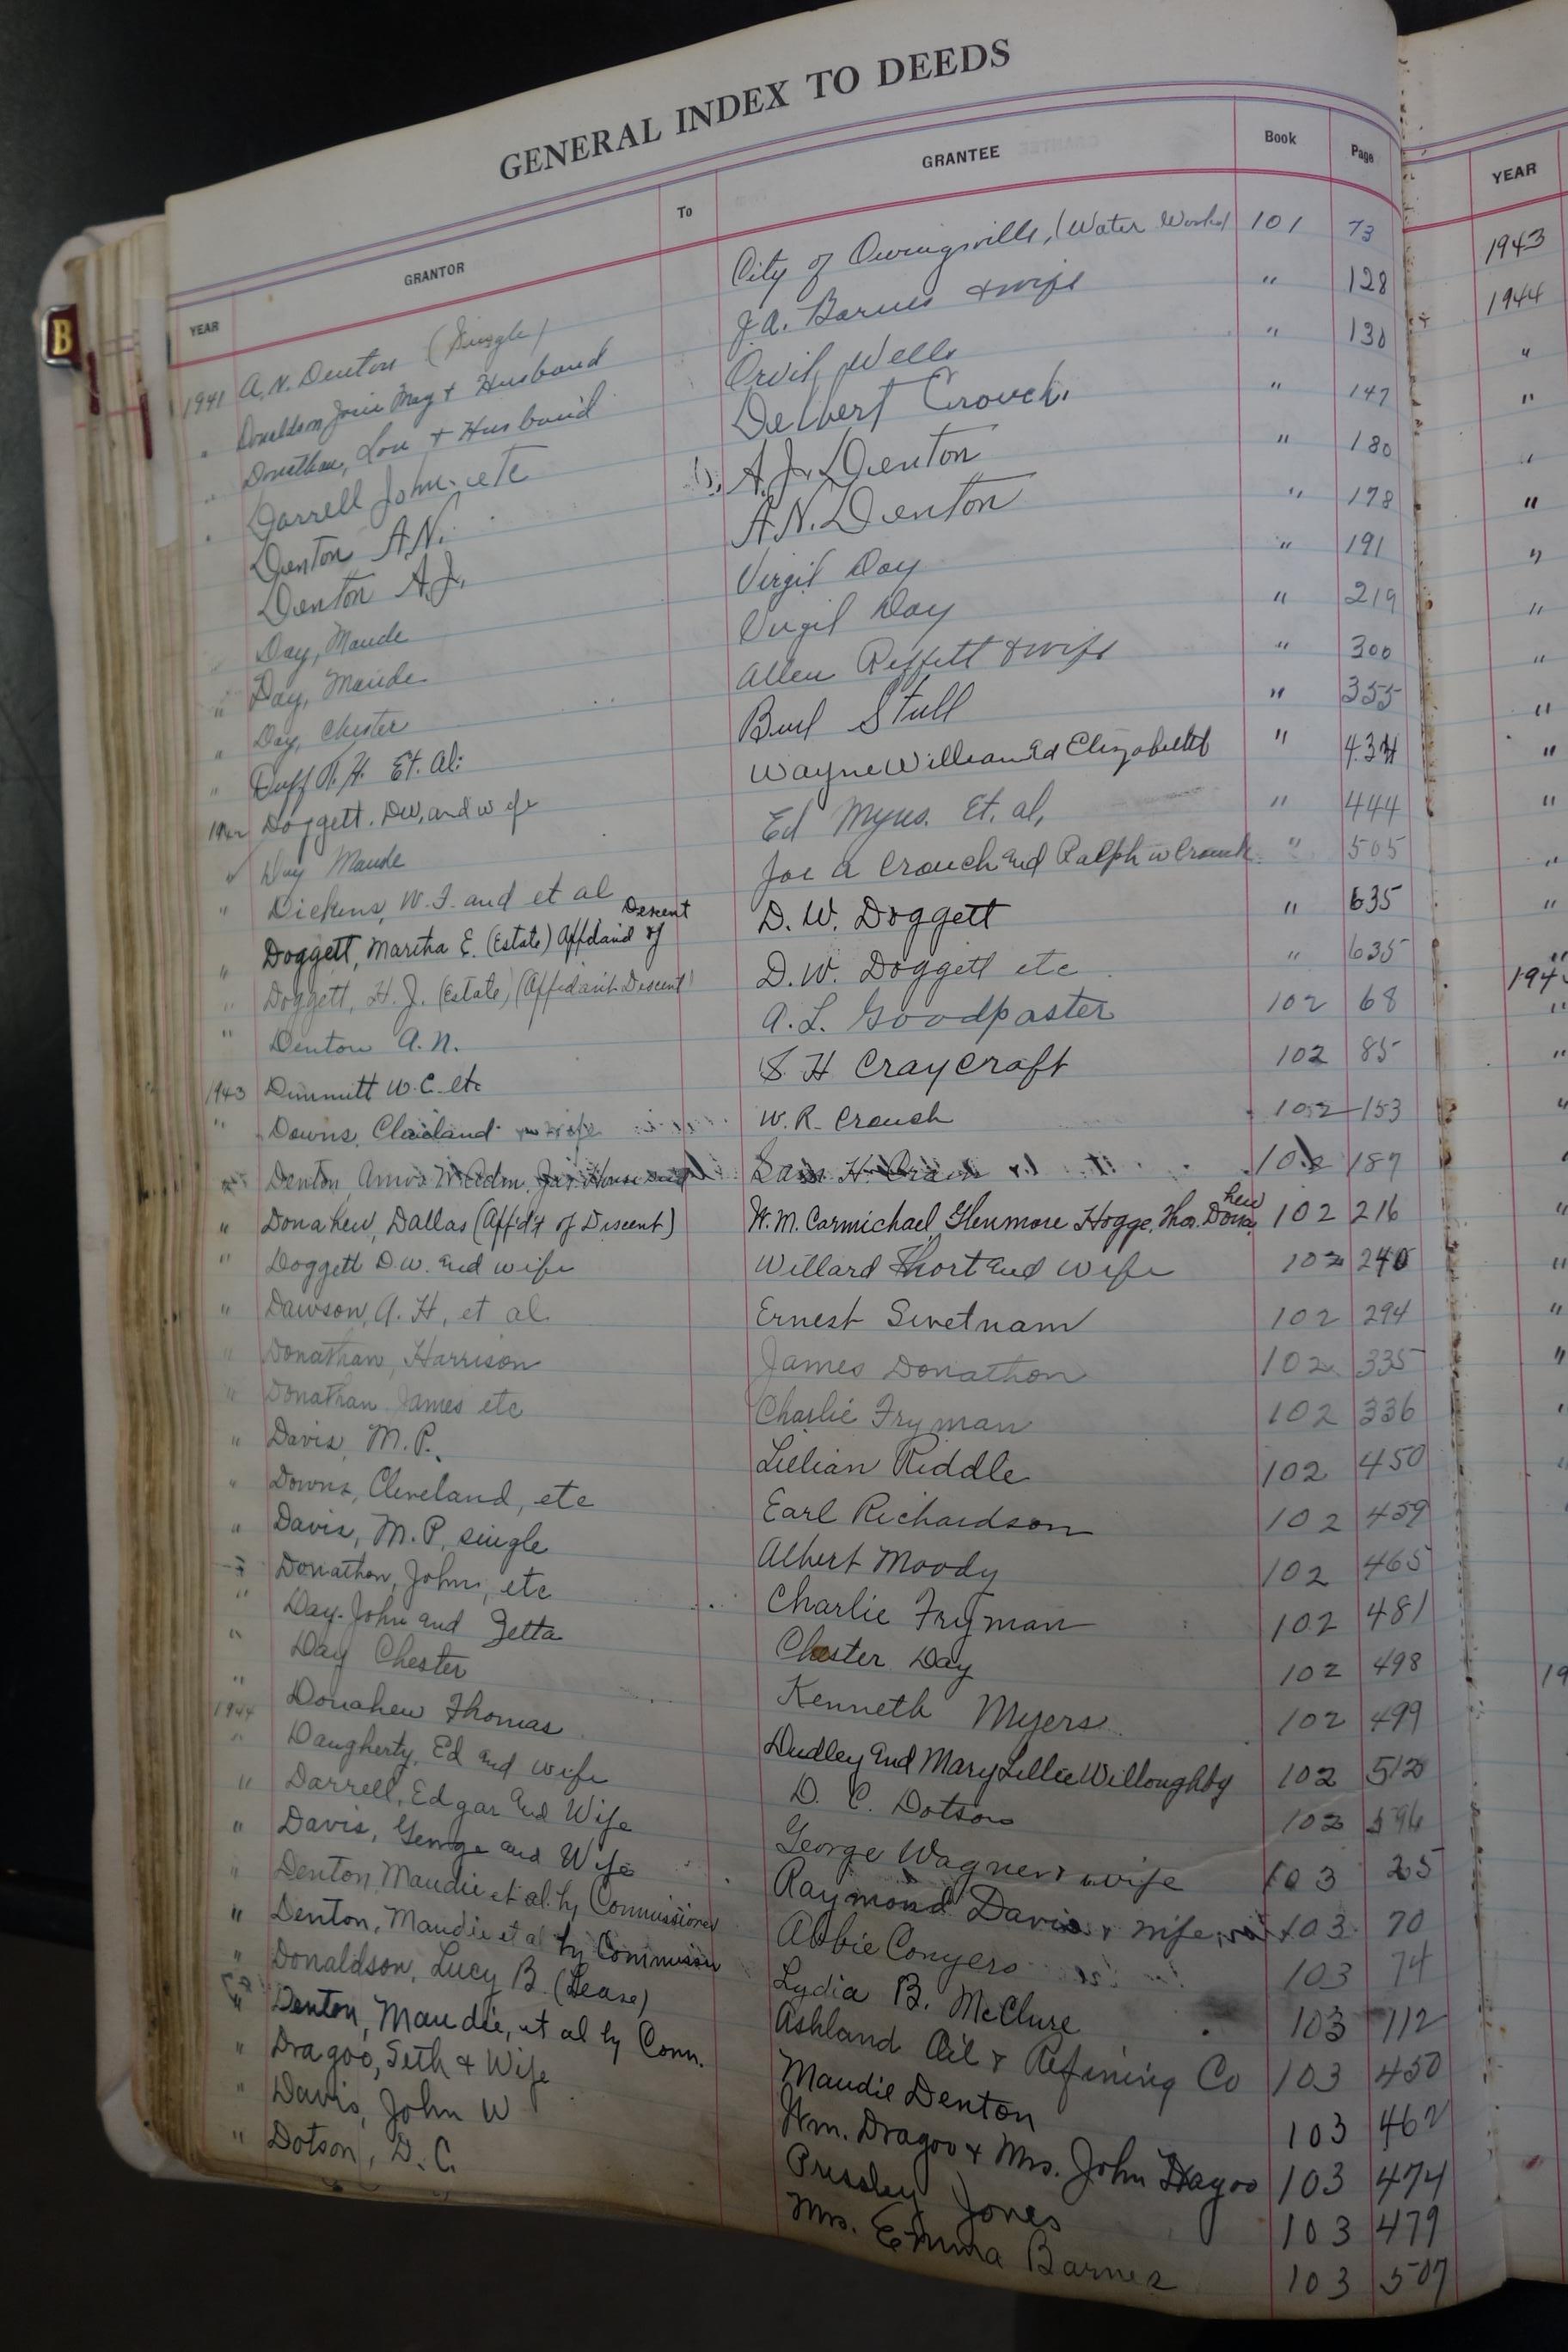 GENERAL INDEX TO DEEDS
YEAR GRANTOR To GRANTEE Book Page
1941 A.N. Denton (Single) City of Owingsville, (Water Works) 101 73
" Donaldson Josie May & Husband J.A. Barnes & wife " 128
" Donathan, Lou & Husband Orvil Wells " 130
" Darrell John etc Delbert Crouch " 147
Denton A.N. A.J. Denton " 180
Denton A.J. A.N. Denton " 178
" Day, Maude Virgil Day " 191
" Day, Maude Virgil Day " 219
" Day, Chester Allen Reffett & wife " 300
" Duff R.H. Et. Al: Burl Stull " 355
1942 Doggett. D.W. and wife Wayne William and Elizabeth " 434
" Day Maude Ed Myers. Et. al, " 444
" Dickens, W.F. and et al Joe A Crouch and Ralph W Crouch " 505
" Doggett, Martha E. (Estate) Affidavid of Descent D.W. Doggett " 635
" Doggett, H.J. (Estate) (Affidavit Descent) D.W. Doggett etc " 635
" Denton A.N. A.L. Goodpaster 102 68
1943 Dimmitt W.C. etc S.H Craycraft 102 85
" Downs, Cleveland W.R. Crouch 102 153
" Denton, Amos 102 187
" Donahew, Dallas (Affd't of Descent) W.M. Carmichael, Glenmore Hogge, Thos. Donahew 102 216
" Doggett D.W. and wife Willard Short and wife 102 240
" Dawson, A.H, et al. Ernest Swetnam 102 294
" Donathan, Harrison James Donathon 102 335
" Donathan James etc Charlie Fryman 102 336
" Davis, M.P. Lillian Riddle 102 450
" Downs, Cleveland, etc Earl Richardson 102 459
" Davis, M.P. single Albert Moody 102 465
" Donathon, John, etc Charlie Fryman 102 481
" Day John and Zetta Chester Day 102 498
" Day Chester Kenneth Myers 102 499
1944 Donahew Thomas Dudley and Mary Lillie Willoughby 102 512
" Daugherty, Ed and wife D.C. Dotson 102 596
" Darrell, Edgar and Wife George Wagner & wife 103 25
" Davis, George and Wife Raymond Davis & wife 103 70
" Denton, Maudie et al by Commissioner Abbie Conyers 103 74
" Denton, Maudie et al by Commission Lydia B. McClure 103 112
" Donaldson, Lucy B. (Lease) Ashland Oil & Refining Co 103 450
" Denton, Maudie, et al by Comm. Maudie Denton 103 462
" Dragoo, Seth & Wife Wm. Dragoo & Mrs. John Dragoo 103 474
" Davis, John W Pressley Jones 103 479
" Dotson, D.C. Mrs. Emma Barnes 103 507
YEAR
1943
1944
B